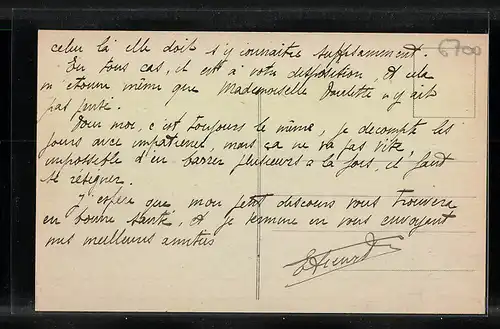 celui là elle doit s'y connaitre suffisamment.
6700
En tous cas, il est à votre disposition, et cela
m'étonne même que Mademoiselle Paulette n'y ait
pas pensé.
Pour moi, c'est toujours le même, je décompte les
jours avec impatience, mais ça ne va pas vite,
impossible d'en barrer plusieurs à la fois, il faut
se résigner.
J'espère que mon petit discours vous trouvera
en bonne santé, et je termine en vous envoyant
mes meilleurs amitiés